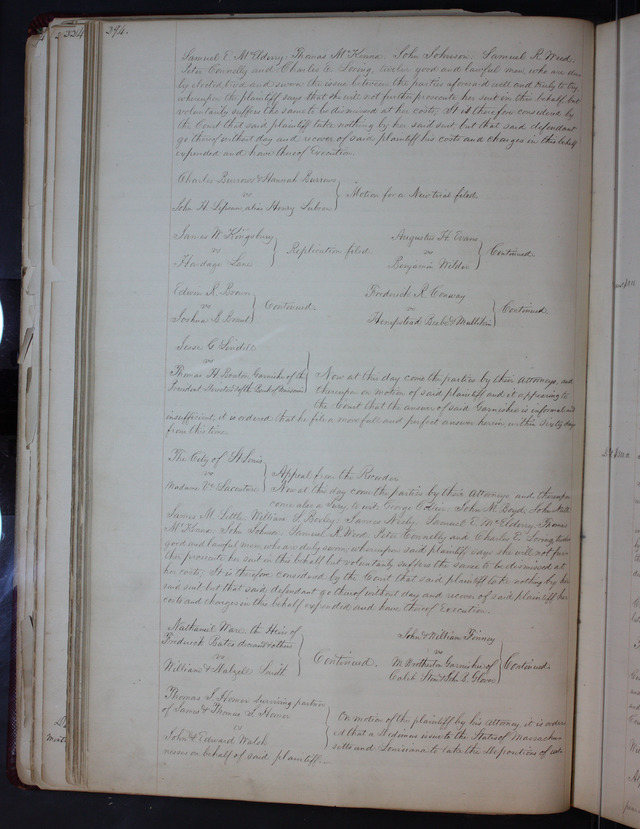 294.
Samuel E. McElderry, Thomas McKenna, John Johnson, Samuel R. Weed,
Peter Connelly and Charles E. Loving, twelve good and lawful men, who are du-
ly elected tried and sworn the issue between the parties aforesaid well and truly to try,
whereupon the plaintiff says that she will not further prosecute her suit in this behalf but
voluntarily suffers the same to be dismissed at her costs; It is therefore considered by
the Court that said plaintiff take nothing by her said suit, but that said defendant
go thereof without day and recover of said plaintiff his costs and charges in this behalf
expended and have thereof Execution.
Charles Burrows & Hannah Burrows
vs
John H. Lipsom alias Henry
Motion for a New trial filed.
James W Kingsbury
vs
Hardage Lane
Replication filed
Augustus H. Evans
vs
Benjamin Wilder
Continued.
Edwin R. Brown
vs
Joshua B. Brant
Continued.
Frederick R. Conway
vs
Hempstead Beebe &
Continued.
Jesse G Lindell
vs
Thomas H. Benton Garnishee of the
President Directors &c of the Bank of Missouri
Now at this day come the parties by their Attorneys, and
thereupon on motion of said plaintiff and it appearing to
the Court that the answer of said Garnishee is informal and
insufficient, it is ordered that he file a more full and perfect answer herein within sixty days
from this time.
The City of St Louis
vs
Madame Ve
Appeal from the Recorder
Now at this day come the parties by their Attorneys and thereupon
come also a Jury, to wit, George Collier, John M. Boyd, John
James M. Little, William L. Boxley, James Neely, Samuel E. McElderry, Thomas
McKenna, John Johnson, Samuel R. Weed, Peter Connelly and Charles E. Loving, twelve
good and lawful men, who are duly sworn, whereupon said plaintiff says she will not fur-
ther prosecute her suit in this behalf but voluntarily suffers the same to be dismissed at
her costs; It is therefore considered by the Court that said plaintiff take nothing by her
said suit but that said defendant go thereof without day and recover of said plaintiff her
costs and charges in this behalf expended and have thereof Execution.
Nathaniel Ware the Heir of
Frederick Bates deceased & others
vs
William & Halzell Smith
Continued.
John & William Finney
vs
M. Wortherton Garnishee of
Caleb Stone & John B. Glover
Continued.
Thomas J. Homer surviving partner
of James & Thomas J. Homer
vs
John & Edward Walsh
On motion of the plaintiff by his Attorney, it is order-
ed that a Dedimus issue to the States of Massachu-
setts and Louisiana to take the Depositions of wit-
nesses on behalf of said plaintiff.—